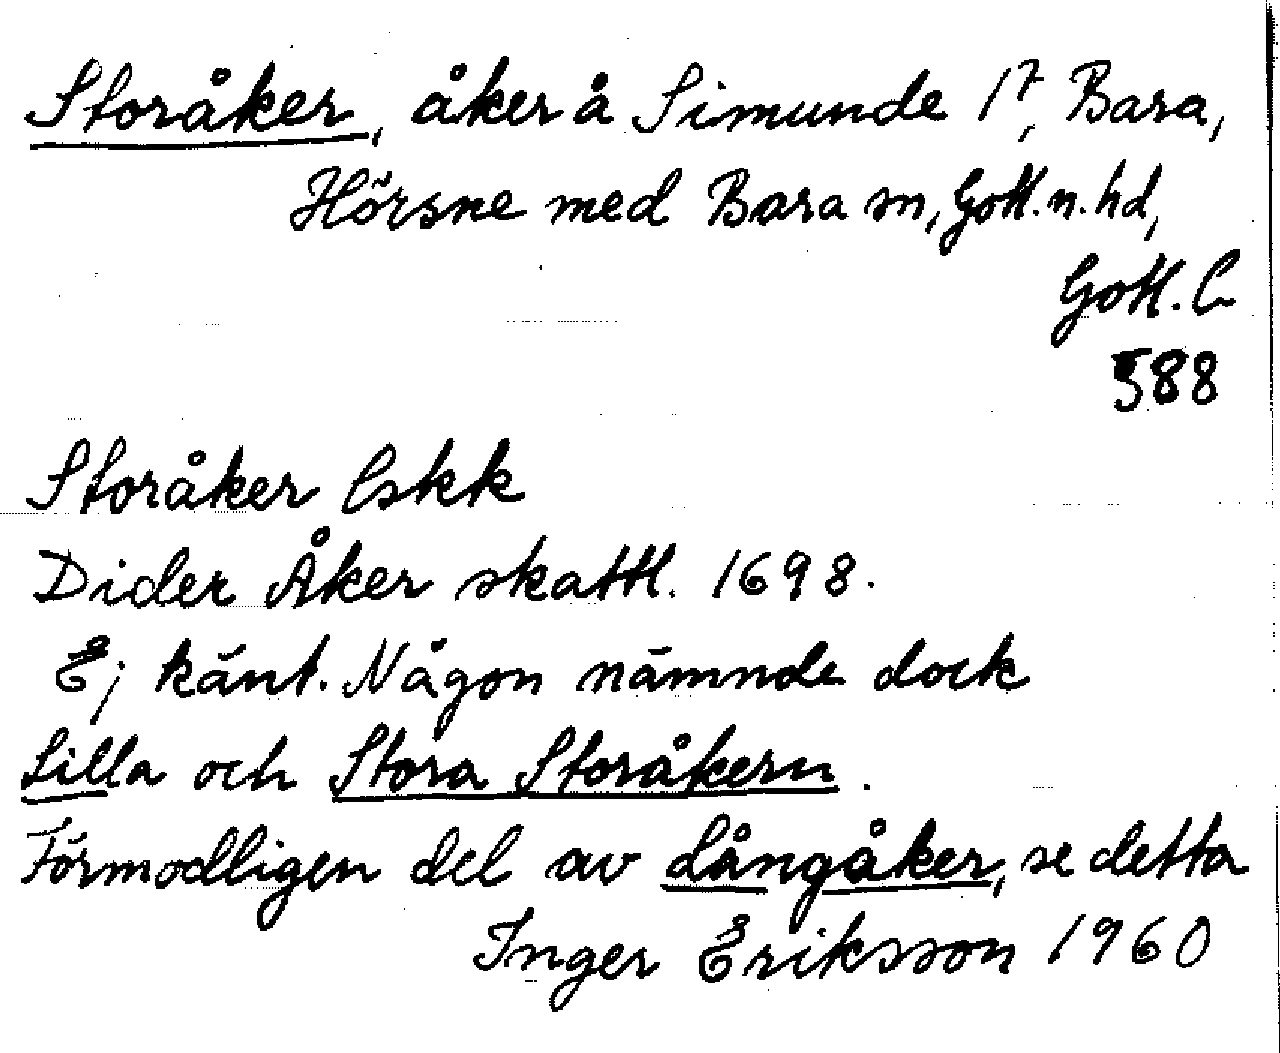 Storåker, åker å Simunde 1?, Bara,
Hörsne med Bara sn, Gotl. n. hd,
Gotl. L
588
Storåker Eskk
Dider Åker skattl. 1698.
Ej känt. Någon nämnde dock
Lilla och Stora Storåkern.
Förmodligen del av Långåker, se detta
Inger Eriksson 1960